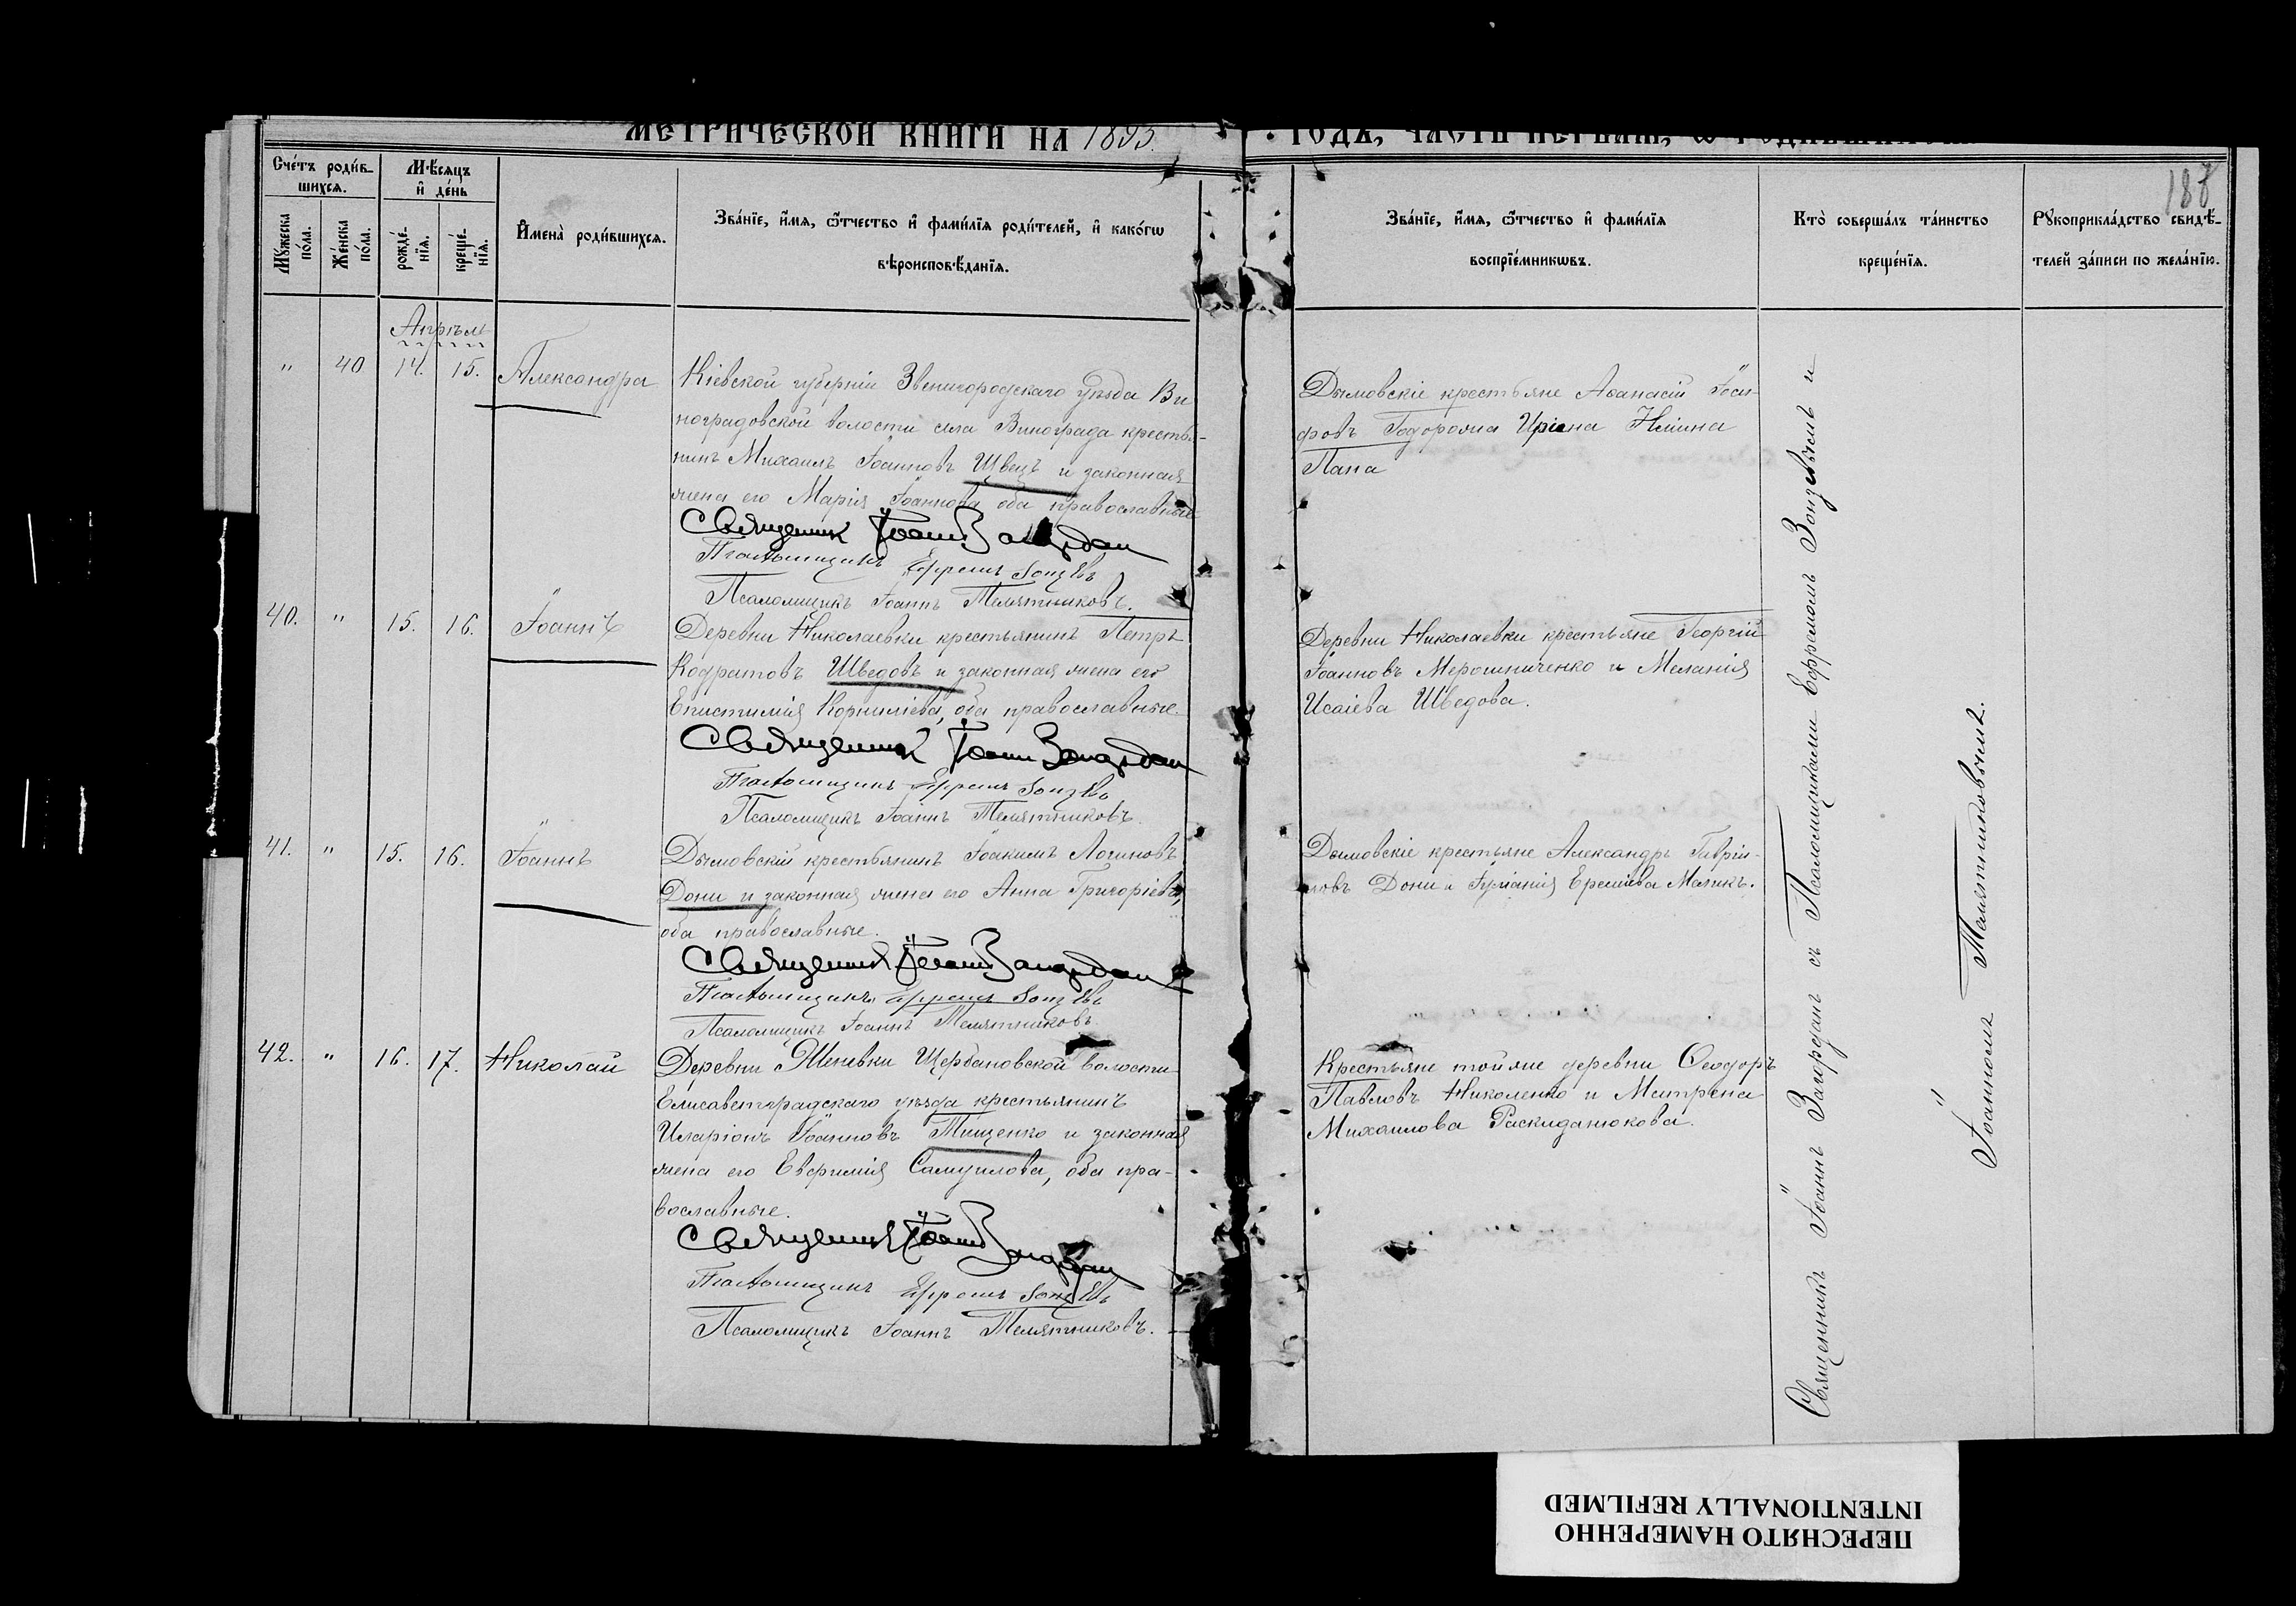 МЕТРИЧЕСКОЙ КНИГИ НА 1895.
ГОДЪ, ЧАСТЬ ПЕРВАЯ,
188
Сче́тъ роди́в-
шихся.
Мѣ́сяцъ
и҆ де́нь
Мꙋ́жеска по́ла.
Же́нска по́ла.
рожде́-
нїя.
креще́-
нїя.
И҆мена̀ роди́вшихся.
Зва́нїе, и҆́мя, ѻ҆́тчество и҆ фами́лїя роди́телей, и҆ како́гѡ
вѣроисповѣ́данїя.
Зва́нїе, и҆́мя, ѻ҆́тчество и҆ фами́лїя
воспрїе́мникѡвъ.
Кто̀ соверша́лъ та́инство
креще́нїя.
Рꙋкоприкла́дство свидѣ́-
телей за́писи по жела́нїю.
Апрѣль
" 40 14. 15. Александра
Кіевской губерніи Звенигородскаго уѣзда Ви
ноградовской волости села Винограда крестья-
нинъ Михаилъ Іоанновъ Швецъ и законная
жена его Марія Іоаннова оба православные
Священник Іоанн Загордан
Псаломщикъ Ефремъ Зонзевъ
Псаломщикъ Іоаннъ Телятниковъ.
Дымовскіе крестьяне Аѳанасій Іоси-
фовъ
Пана
40. " 15. 16. Іоаннъ
Деревни Николаевки крестьянинъ Петръ
Кодратовъ Шведовъ и законная жена его
Епистимія Корниліева, оба православные.
Священник Іоанн Загордан
Псаломщикъ Ефремъ Зонзевъ
Псаломщикъ Іоаннъ Телятниковъ.
Деревни Николаевки крестьяне Георгій
Іоанновъ Мерошниченко и Меланія
Исаіева Шведова.
41. " 15. 16. Іоаннъ
Дымовскій крестьянинъ Іоакимъ Логиновъ
Дони и законная жена его Анна Григоріева,
оба православные.
Священник Іоанн Загордан
Псаломщикъ Ефремъ Зонзевъ
Псаломщикъ Іоаннъ Телятниковъ
Дымовскіе крестьяне Александръ Гаврiи-
ловъ Дони и Іуліанія
42. " 16. 17. Николай
Деревни Щербановской волости
Елисаветградскаго уѣзда крестьянинъ
Иларіонъ Іоанновъ Тищенко и законная
жена его Евфимія Самуилова, оба пра-
вославные.
Священник Іоанн Загордан
Псаломщикъ Ефремъ Зонзевъ
Псаломщикъ Іоаннъ Телятниковъ.
Крестьяне тойже деревни Ѳеодоръ
Павловъ Николенко и Матрена
Михаилова Раскиданюкова.
Священникъ Іоаннъ Загорданъ съ Псаломщиками Ефремомъ Зонзевымъ и
Іоанномъ Телятниковымъ.
ПЕРЕСНЯТО НАМЕРЕННО
INTENTIONALLY REFILMED